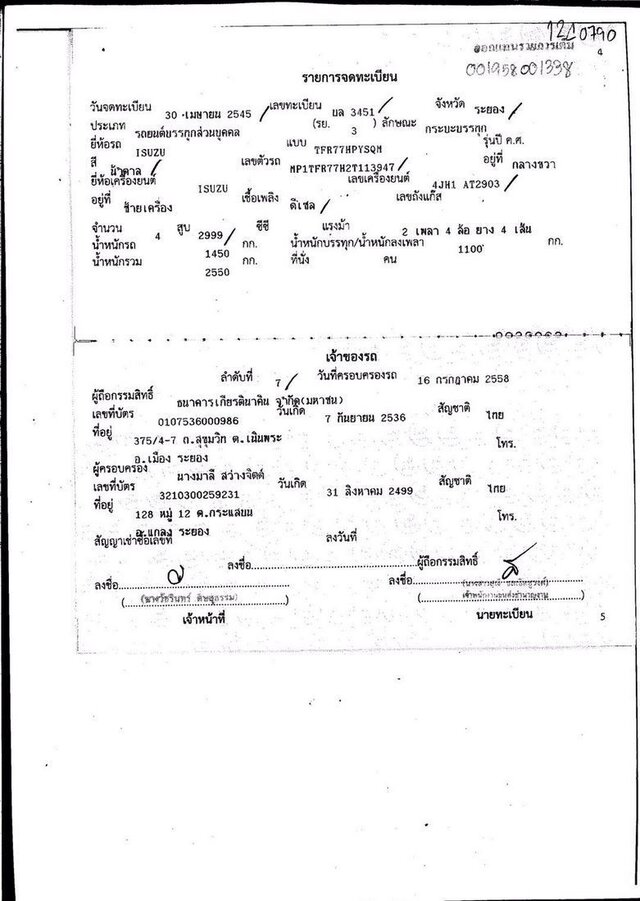 1210790
ออกแทนรายการเดิม
4
001958001338
รายการจดทะเบียน
วันจดทะเบียน 30 เมษายน 2545 เลขทะเบียน บล 3451 จังหวัด ระยอง
ประเภท รถยนต์บรรทุกส่วนบุคคล (รย. 3 ) ลักษณะ กระบะบรรทุก
ยี่ห้อรถ ISUZU แบบ TFR77HPYSQM รุ่นปี ค.ศ.
สี น้ำตาล เลขตัวรถ MP1TFR77H2T113947 อยู่ที่ กลางขวา
ยี่ห้อเครื่องยนต์ ISUZU เลขเครื่องยนต์ 4JH1 AT2903
อยู่ที่ ซ้ายเครื่อง เชื้อเพลิง ดีเซล เลขถังแก๊ส
จำนวน 4 สูบ 2999 ซีซี แรงม้า 2 เพลา 4 ล้อ ยาง 4 เส้น
น้ำหนักรถ 1450 กก. น้ำหนักบรรทุก/น้ำหนักลงเพลา 1100 กก.
น้ำหนักรวม 2550 กก. ที่นั่ง คน
เจ้าของรถ
ลำดับที่ 7 วันที่ครอบครองรถ 16 กรกฎาคม 2558
ผู้ถือกรรมสิทธิ์ ธนาคารเกียรตินาคิน จำกัด(มหาชน)
เลขที่บัตร 0107536000986 วันเกิด 7 กันยายน 2536 สัญชาติ ไทย
ที่อยู่ 375/4-7 ถ.สุขุมวิท ต.เนินพระ โทร.
อ.เมือง ระยอง
ผู้ครอบครอง นางมาลี สว่างจิตต์
เลขที่บัตร 3210300259231 วันเกิด 31 สิงหาคม 2499 สัญชาติ ไทย
ที่อยู่ 128 หมู่ 12 ต.กระแสบน โทร.
อ.แกลง ระยอง
สัญญาเช่าซื้อเลขที่ ลงวันที่
ลงชื่อ ผู้ถือกรรมสิทธิ์
ลงชื่อ ลงชื่อ
เจ้าหน้าที่ นายทะเบียน
5